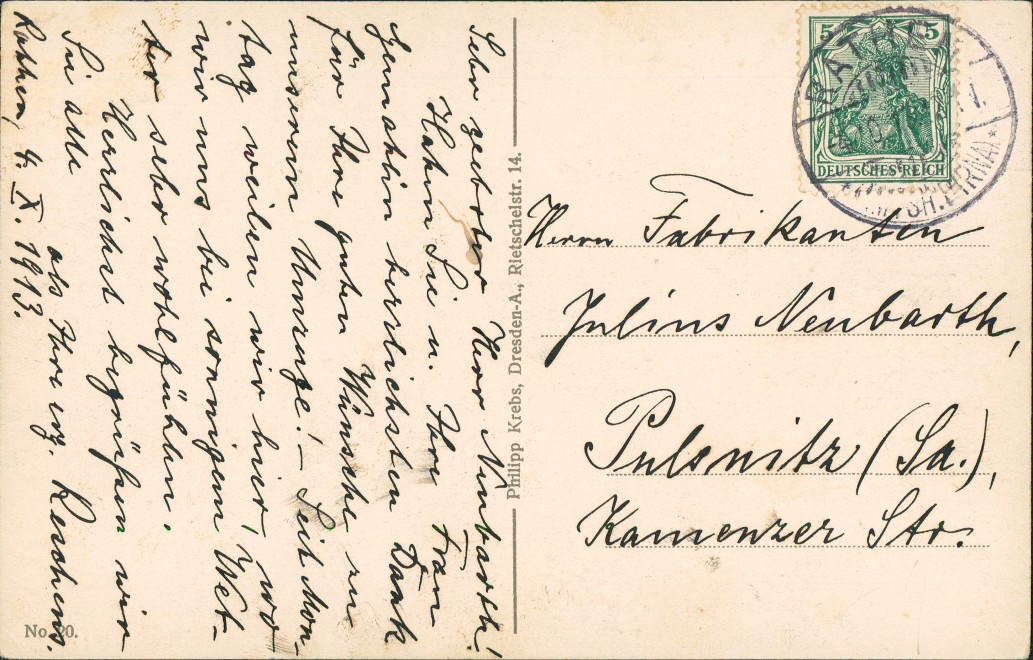 Sehr geehrter Herr Neubarth!
Haben Sie u. Ihre Frau
Gemahlin herzlichsten Dank
für Ihre guten Wünsche zu
unserem Umzuge! – Seit Mon-
tag weilen wir hier, wo
wir uns bei sonnigem Wet-
ter sehr wohlfühlen.
Herzlichst begrüßen wir
Sie alle
als Ihre erg.
Rathen, 4. X. 1913.
No. 20.
Philipp Krebs, Dresden-A., Rietschelstr. 14.
5 5
DEUTSCHES REICH
RATHEN
Herrn Fabrikanten
Julius Neubarth,
Pulsnitz (Sa.),
Kamenzer Str.